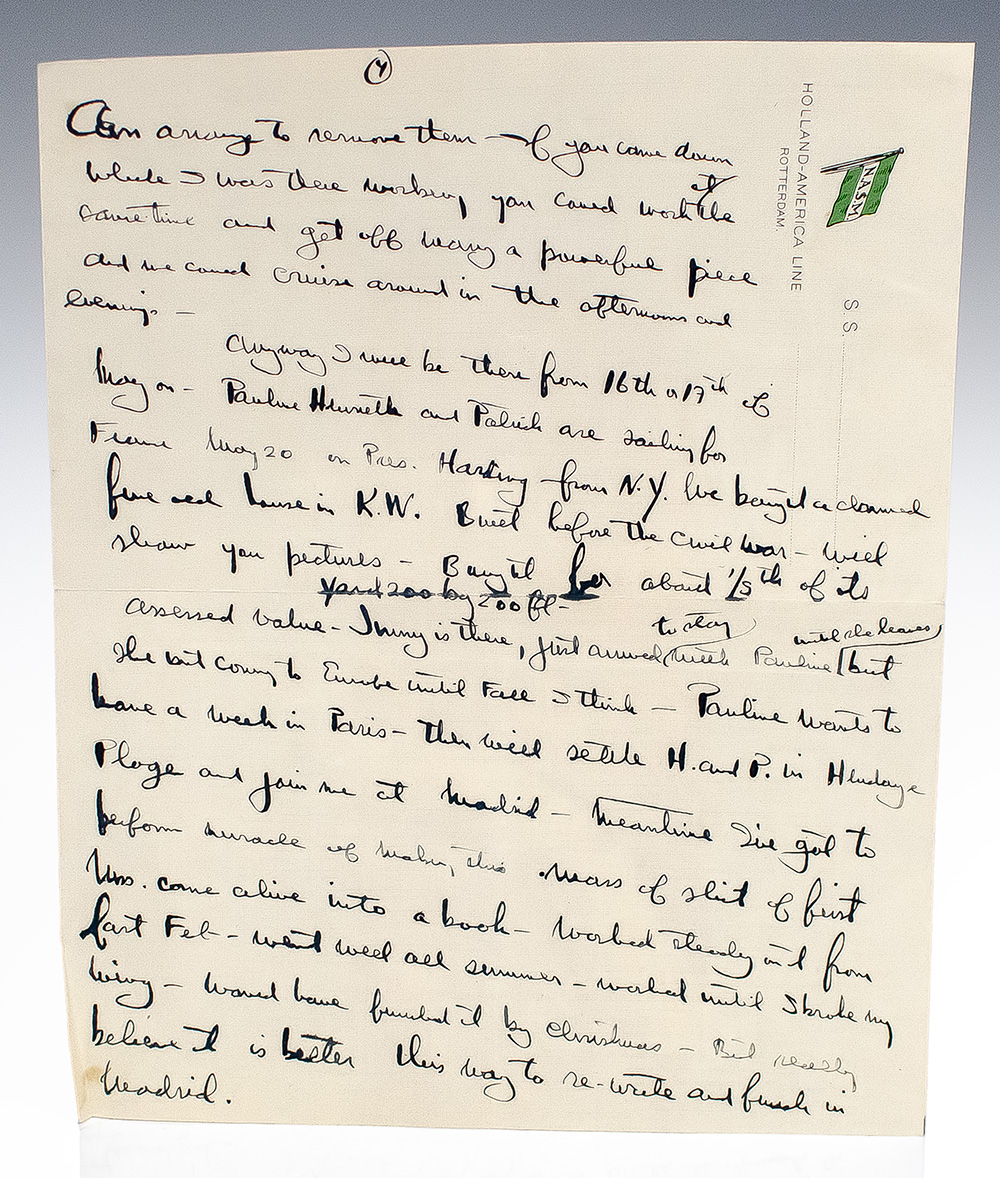 (4)
HOLLAND-AMERICA LINE
ROTTERDAM.
N.A.S.M.
S. S.
Can arrange to remove them — If you come down
while I was there working you could work at the
same time and get off many a powerful piece
and we could cruise around in the afternoons and
evenings —
Anyway I will be there from 16th or 17th of
May on — Pauline Henrietta and Patrick are sailing for
France May 20 on Pres. Harding from N.Y. We bought a damned
fine old house in K.W. Built before the civil war — will
show you pictures — Bought for about 1/5th of its
yard 200 by 200 ft —
assessed value — Jinny is there, just arrived to stay with Pauline until she leaves but
she isnt coming to Europe until Fall I think — Pauline wants to
have a week in Paris — then will settle H. and P. in Hendaye
Plage and join me at Madrid — Meantime I've got to
perform miracle of making this mass of shit of first
Mss. come alive into a book — Worked steady on it from
last Feb — went well all summer — worked until I broke my
wing — would have finished it by christmas — But really
believe it is better this way to re-write and finish in
Madrid.